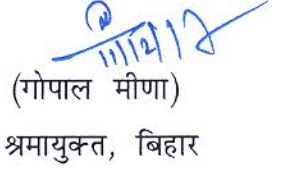 (गोपाल मीणा)
श्रमायुक्त, बिहार